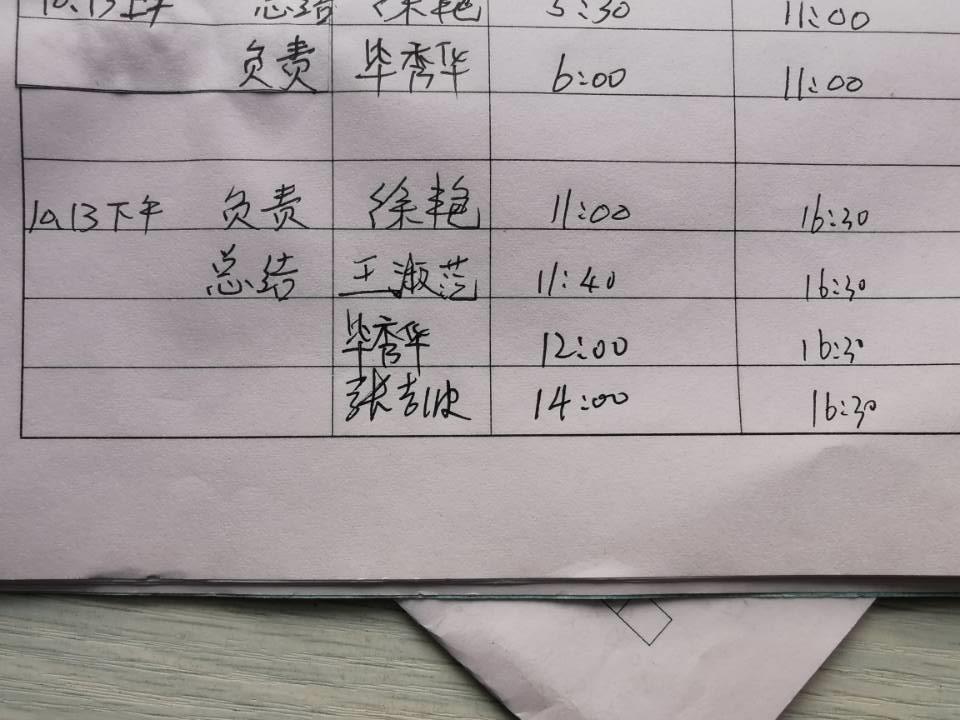 10.13上午 总结 徐艳 5:30 11:00
负责 毕秀华 6:00 11:00
10.13下午 负责 徐艳 11:00 16:30
总结 王淑范 11:40 16:30
毕秀华 12:00 16:30
张吉波 14:00 16:30